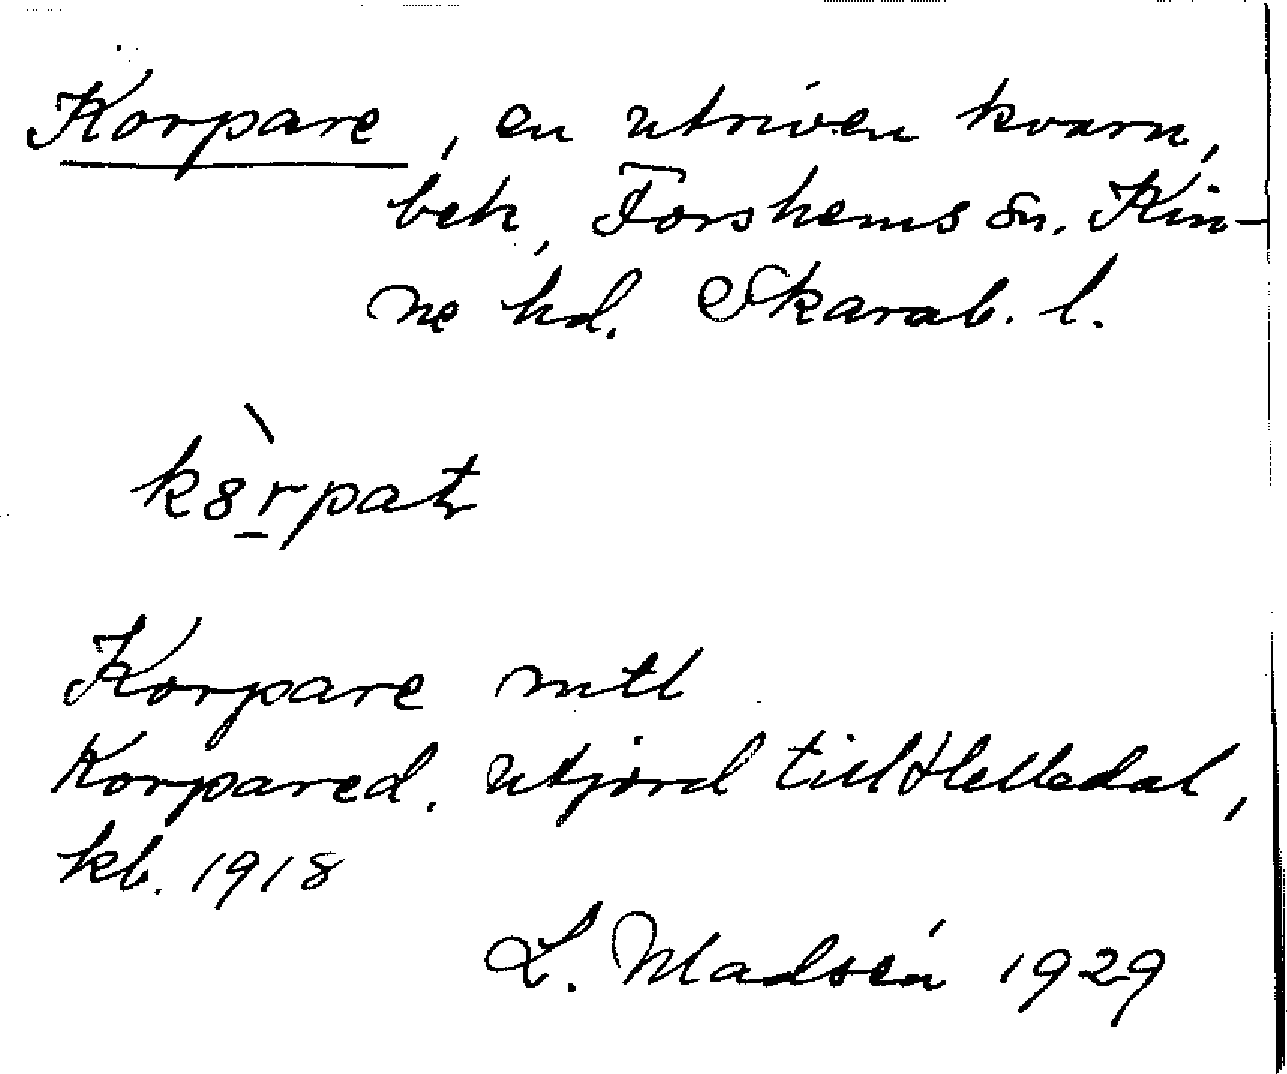 Korpare, en utriven kvarn,
beh, Forshems sn. Kin-
ne hd. Skarab. l.
Korpare mtl
Korpared. utjord till Helledal,
kb. 1918
L. Madsén 1929